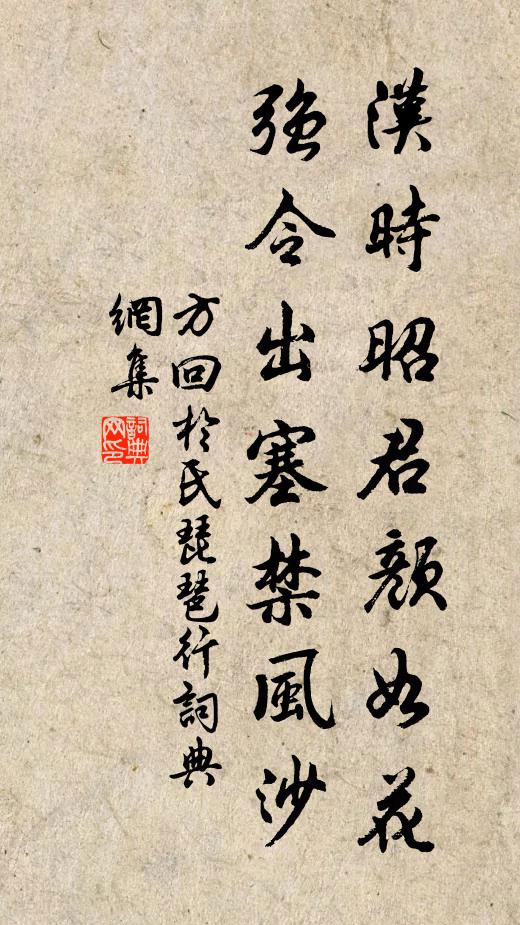 漢時昭君顔如花
強令出塞禁風沙
方回於氏琵琶行詞典
網集
詞典網印